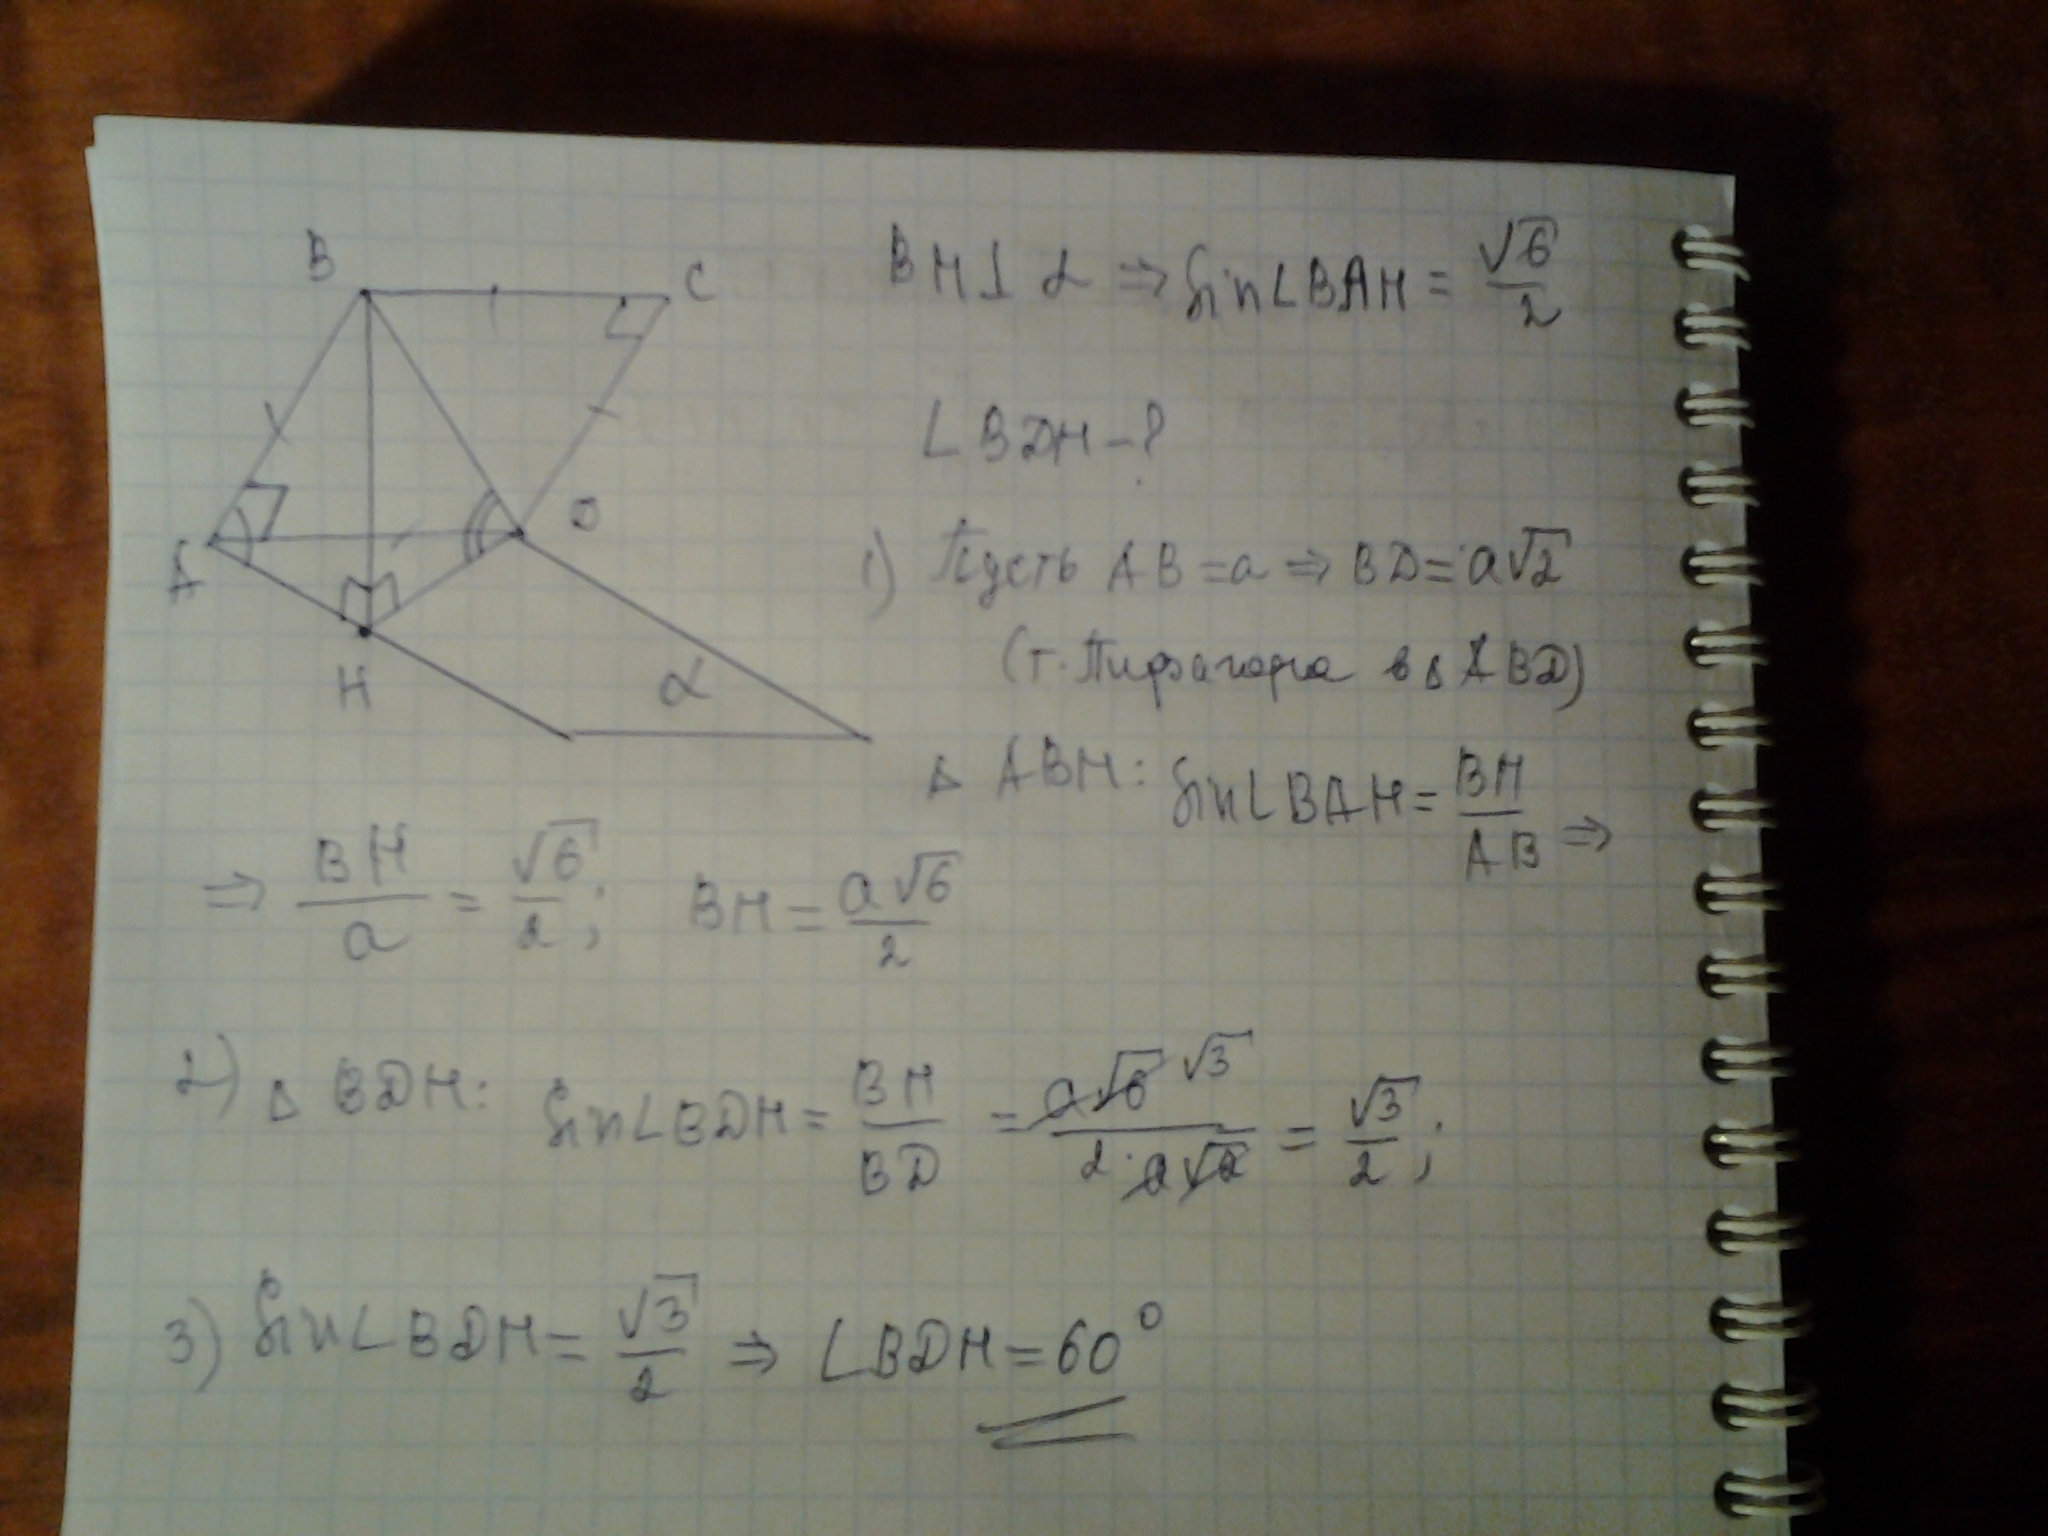 B C
A D
H α
BH ⊥ α ⇒ sin∠BAH = √6/2
∠BDH – ?
1) Пусть AB = a ⇒ BD = a√2
(т. Пифагора в Δ ABD)
Δ ABH: sin∠BAH = BH/AB ⇒
⇒ BH/a = √6/2; BH = a√6/2
2) Δ BDH: sin∠BDH = BH/BD = a√6 √3/2·a√2 = √3/2;
3) sin∠BDH = √3/2 ⇒ ∠BDH = 60°